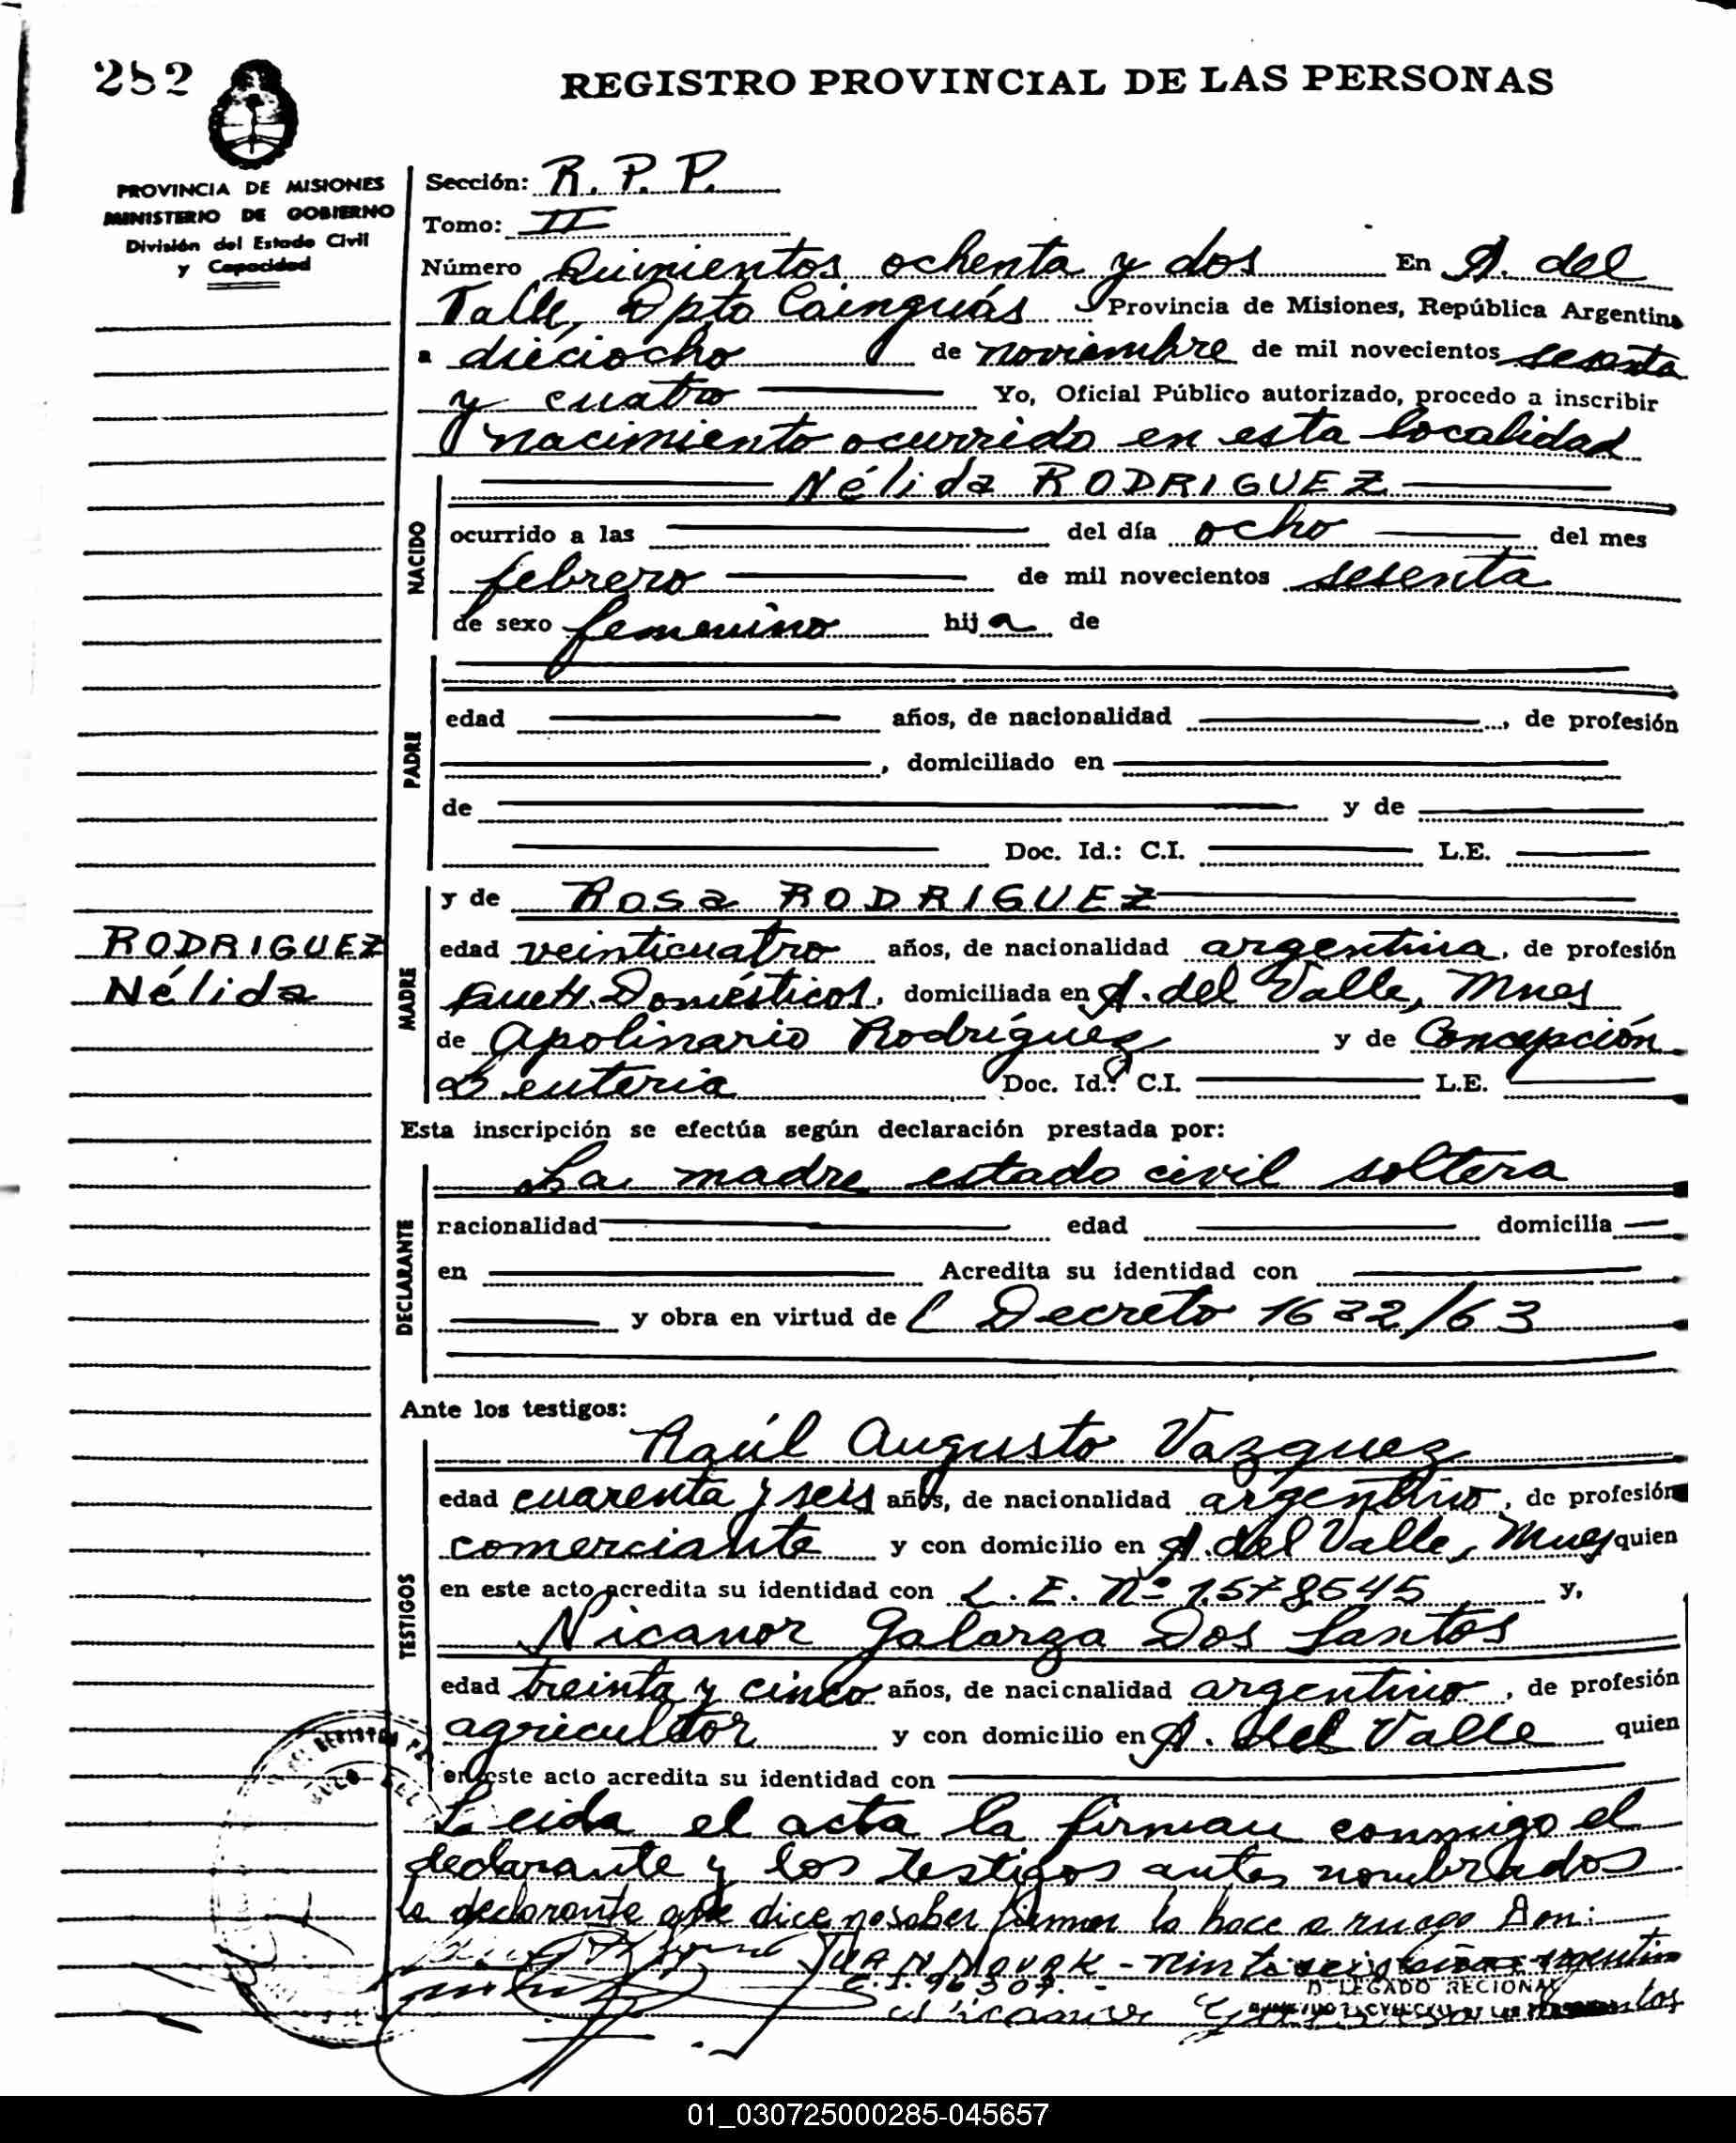 282
REGISTRO PROVINCIAL DE LAS PERSONAS
PROVINCIA DE MISIONES
MINISTERIO DE GOBIERNO
División del Estado Civil
y Capacidad
Sección: R. P. P.
Tomo: II
Número Quinientos ochenta y dos En A. del
Valle, Dpto Cainguás Provincia de Misiones, República Argentina
a dieciocho de noviembre de mil novecientos sesenta
y cuatro Yo, Oficial Público autorizado, procedo a inscribir
nacimiento ocurrido en esta localidad
NACIDO
Nélida RODRIGUEZ
ocurrido a las del día ocho del mes
febrero de mil novecientos sesenta
de sexo femenino hija de
PADRE
edad años, de nacionalidad , de profesión
, domiciliado en
de y de
Doc. Id.: C.I. L.E.
MADRE
y de Rosa RODRIGUEZ
RODRIGUEZ
Nélida
edad veinticuatro años, de nacionalidad argentina, de profesión
Domésticos, domiciliada en A. del Valle, Mnes
de Apolinario Rodríguez y de Concepción
Doc. Id.: C.I. L.E.
Esta inscripción se efectúa según declaración prestada por:
DECLARANTE
La madre estado civil soltera
racionalidad edad domicilia
en Acredita su identidad con
y obra en virtud de l Decreto 1632/63
Ante los testigos:
TESTIGOS
Raúl Augusto Vazquez
edad cuarenta y seis años, de nacionalidad argentino, de profesión
comerciante y con domicilio en A. del Valle, Mnes quien
en este acto acredita su identidad con L. E. Nº 1.578545 y,
Nicanor Galarza Dos Santos
edad treinta y cinco años, de nacicnalidad argentino, de profesión
agricultor y con domicilio en A. del Valle quien
en este acto acredita su identidad con
Leida el acta la firman conmigo el
declarante y los testigos antes nombrados
la declarante que dice no saber firmar lo hace a ruego Don:
JUAN NOVAK - argentino
C.I. 96307.-
DELEGADO REGIONAL
Nicanor
01_030725000285-045657